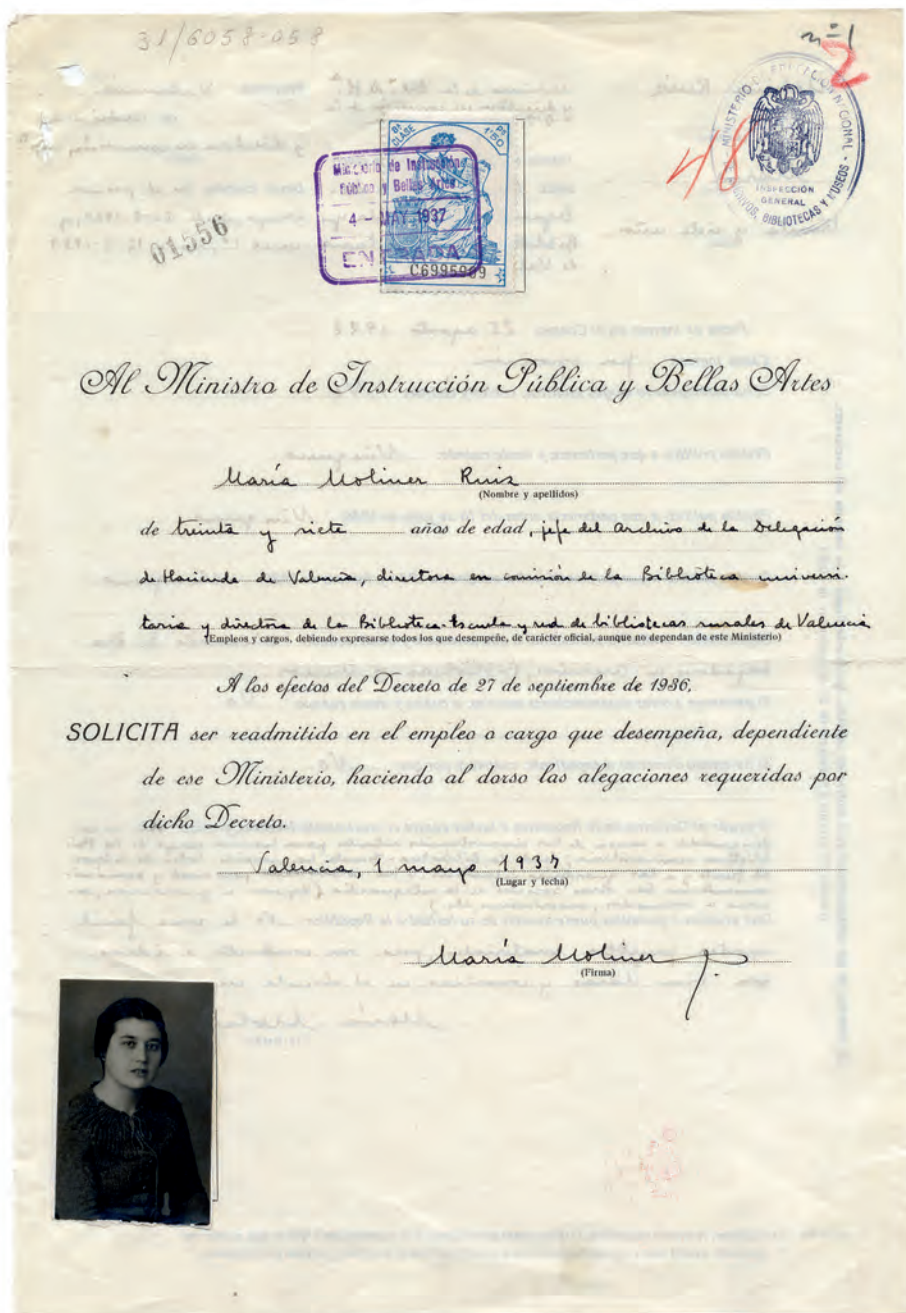 31/6058-058
nº 1
2
48
MINISTERIO DE EDUCACIÓN NACIONAL
INSPECCIÓN
GENERAL
ARCHIVOS, BIBLIOTECAS Y MUSEOS
8ª CLASE
1'50
Ministerio de Instrucción
Pública y Bellas Artes
4 - MAY 1937
ENTRADA
C6995909
01556
Al Ministro de Instrucción Pública y Bellas Artes
María Moliner Ruiz
(Nombre y apellidos)
de treinta y siete años de edad, jefe del Archivo de la Delegación
de Hacienda de Valencia, directora en comisión de la Biblioteca universi-
taria y directora de la Biblioteca-Escuela y red de bibliotecas rurales de Valencia
(Empleos y cargos, debiendo expresarse todos los que desempeñe, de carácter oficial, aunque no dependan de este Ministerio)
A los efectos del Decreto de 27 de septiembre de 1936,
SOLICITA ser readmitido en el empleo o cargo que desempeña, dependiente
de ese Ministerio, haciendo al dorso las alegaciones requeridas por
dicho Decreto.
Valencia, 1 mayo 1937
(Lugar y fecha)
María Moliner
(Firma)